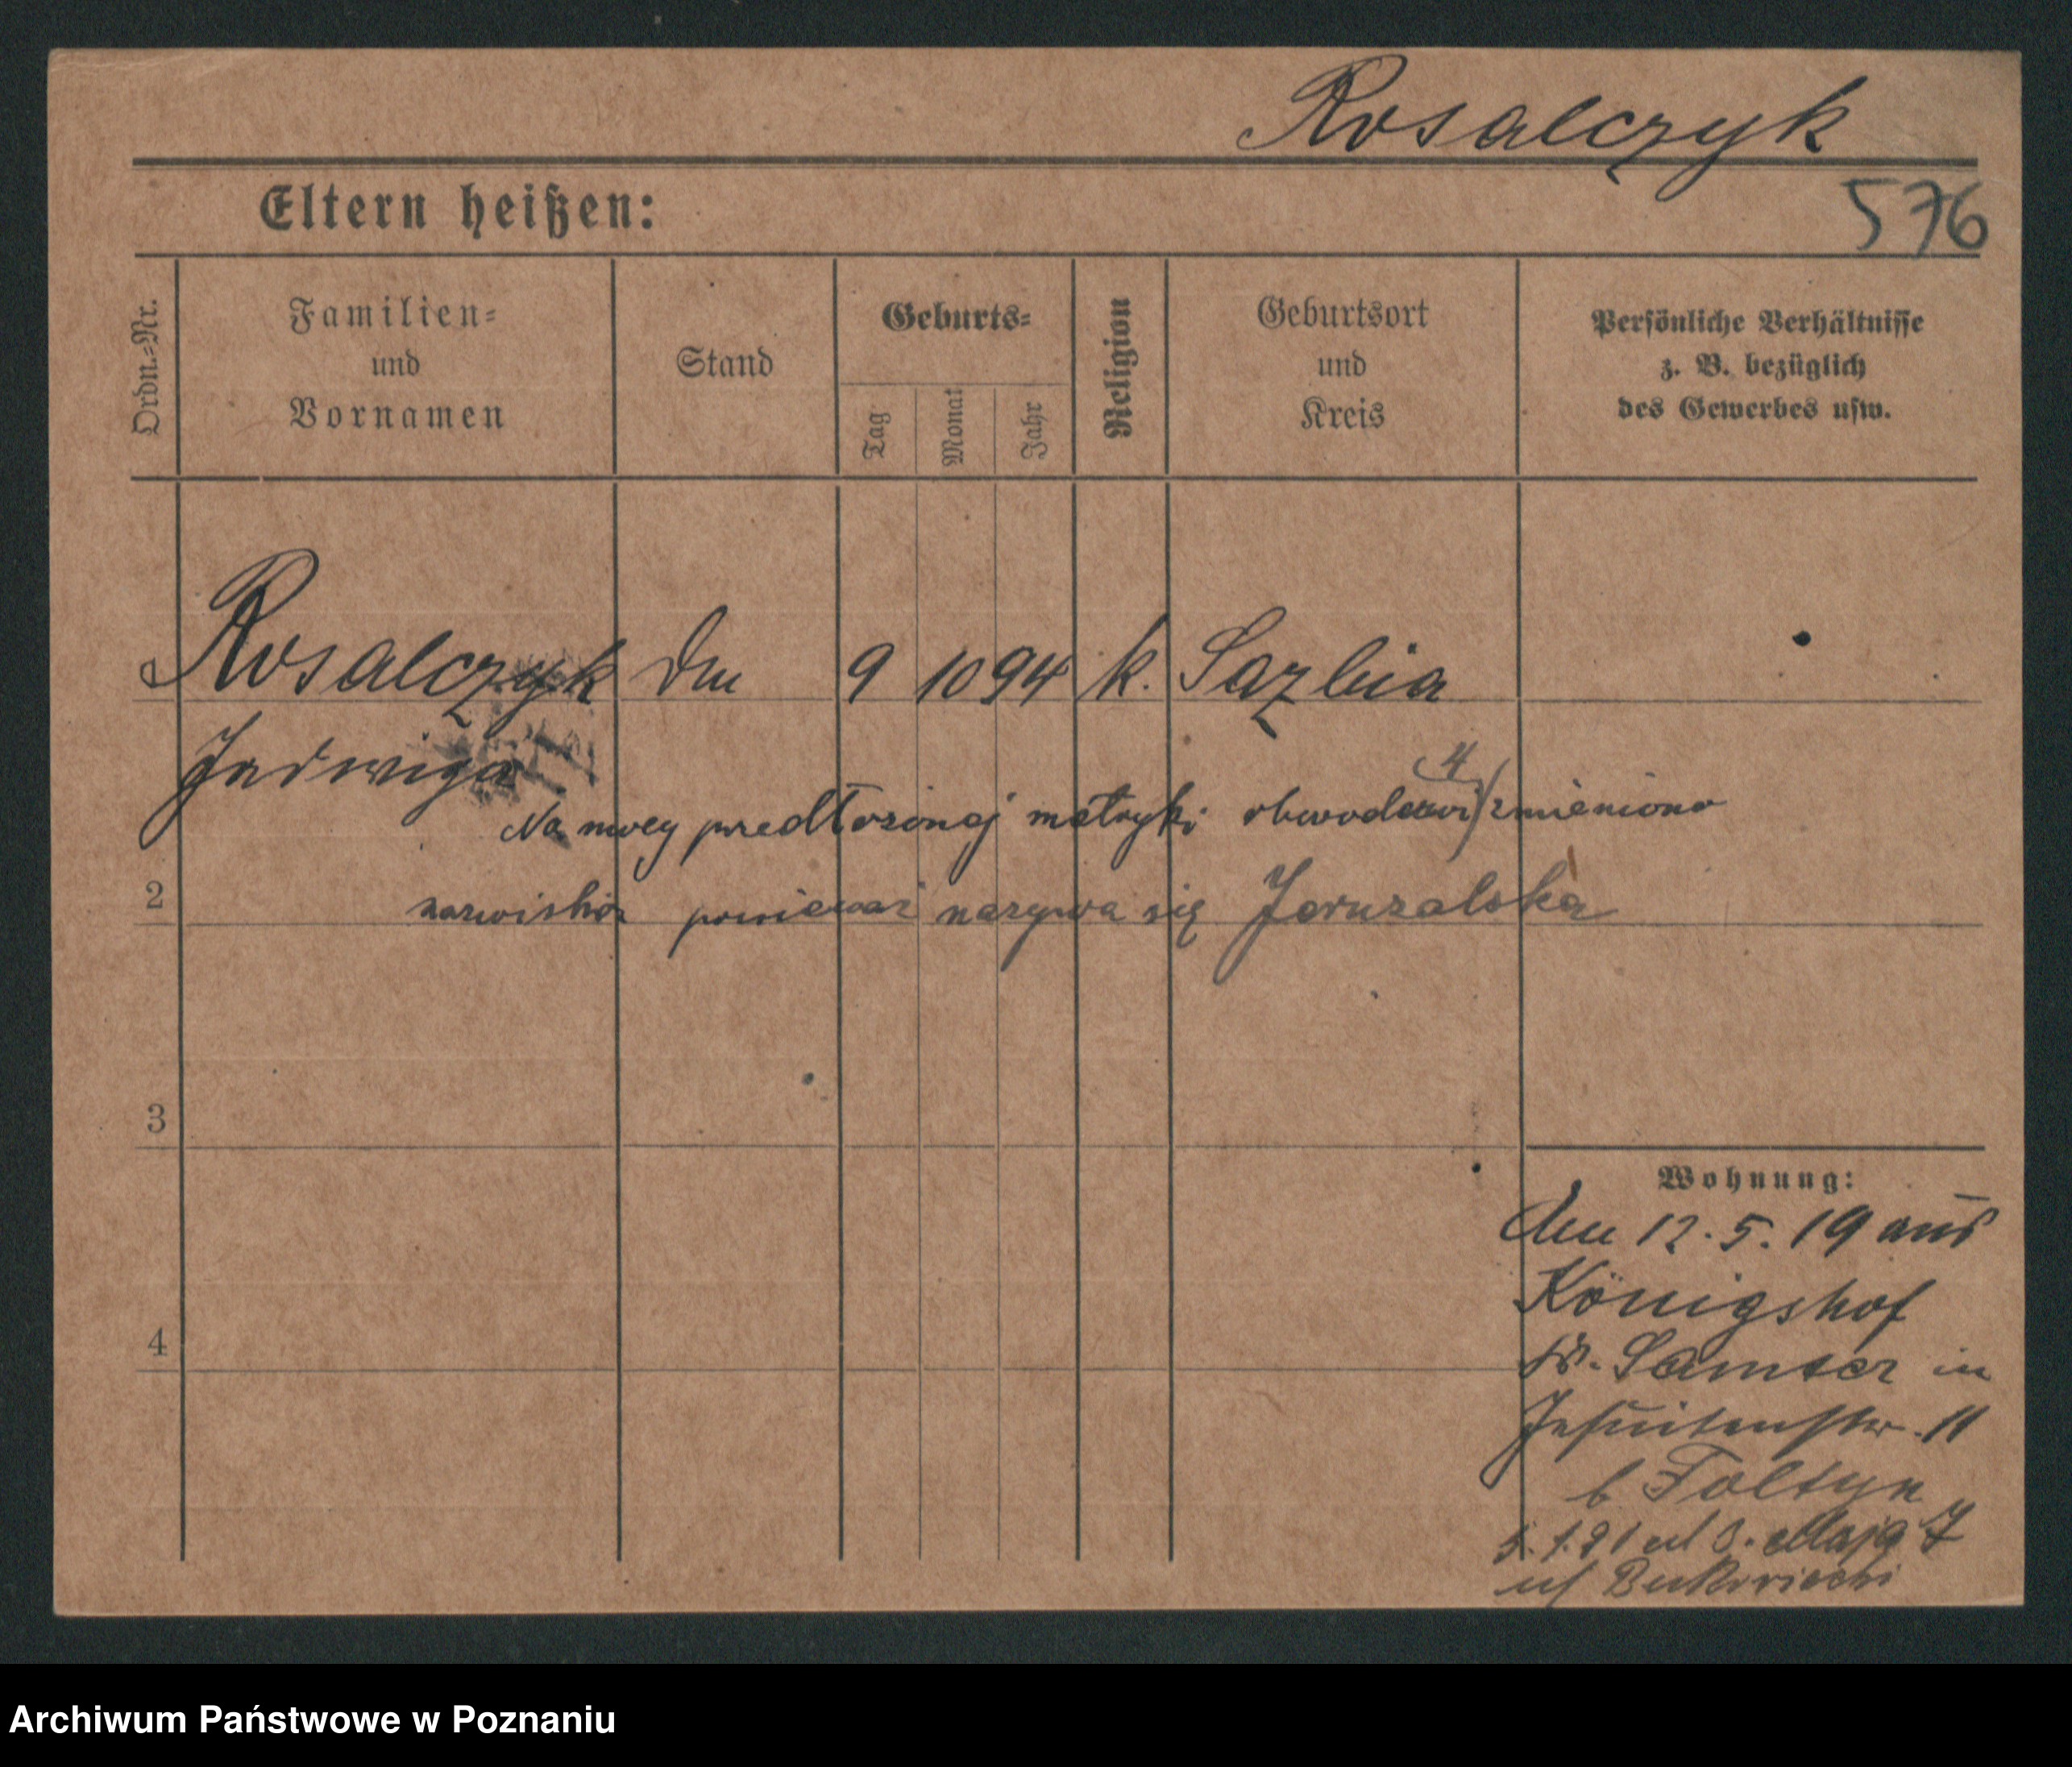 Rosalczyk
Eltern heißen:
576
Ordn.-Nr.
Familien-
und
Vornamen
Stand
Geburts-
Tag
Monat
Jahr
Religion
Geburtsort
und
Kreis
Persönliche Verhältnisse
z. B. bezüglich
des Gewerbes usw.
Rosalczyk
9 10 94 k.
Jadwiga
Na mocy przedłożonej metryki zmieniono
nazwisko ponieważ nazywa się Jeruzalska
2
3
4
Wohnung:
Am 12.5.19 aus
Königshof
Kr. Samter in
Jesuitenstr. 11
b Foltyn
5.1.21 ul 3. Maja 7